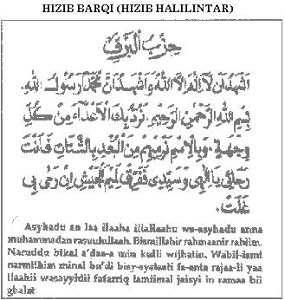 HIZIB BARQI (HIZIB HALILINTAR)
حزب البرق
اشهد ان لا اله الا الله واشهد ان محمد رسول الله
بسم الله الرحمن الرحيم نرد بك الاعداء من كل
وجهة وبالاسم نرميهم من البعد بالشتات فانت
رجائي يا الهي وسيدي ففرق لميم الجيش ان رمى بي
غلت
Asyhadu an laa ilaaha illallaahu wa-asyhadu anna
muhammadan rasuulullaah. Bismillahir rahmaanir rahiim.
Naruddu bikal a'daa-a min kulli wijhatin. Wabil-ismi
narmiihim minal bu'di bisy-syataati fa-anta rajaa-ii yaa
ilaahii wasayyidii fafarriq lamiimal jaisyi in ramaa bii
ghalat.